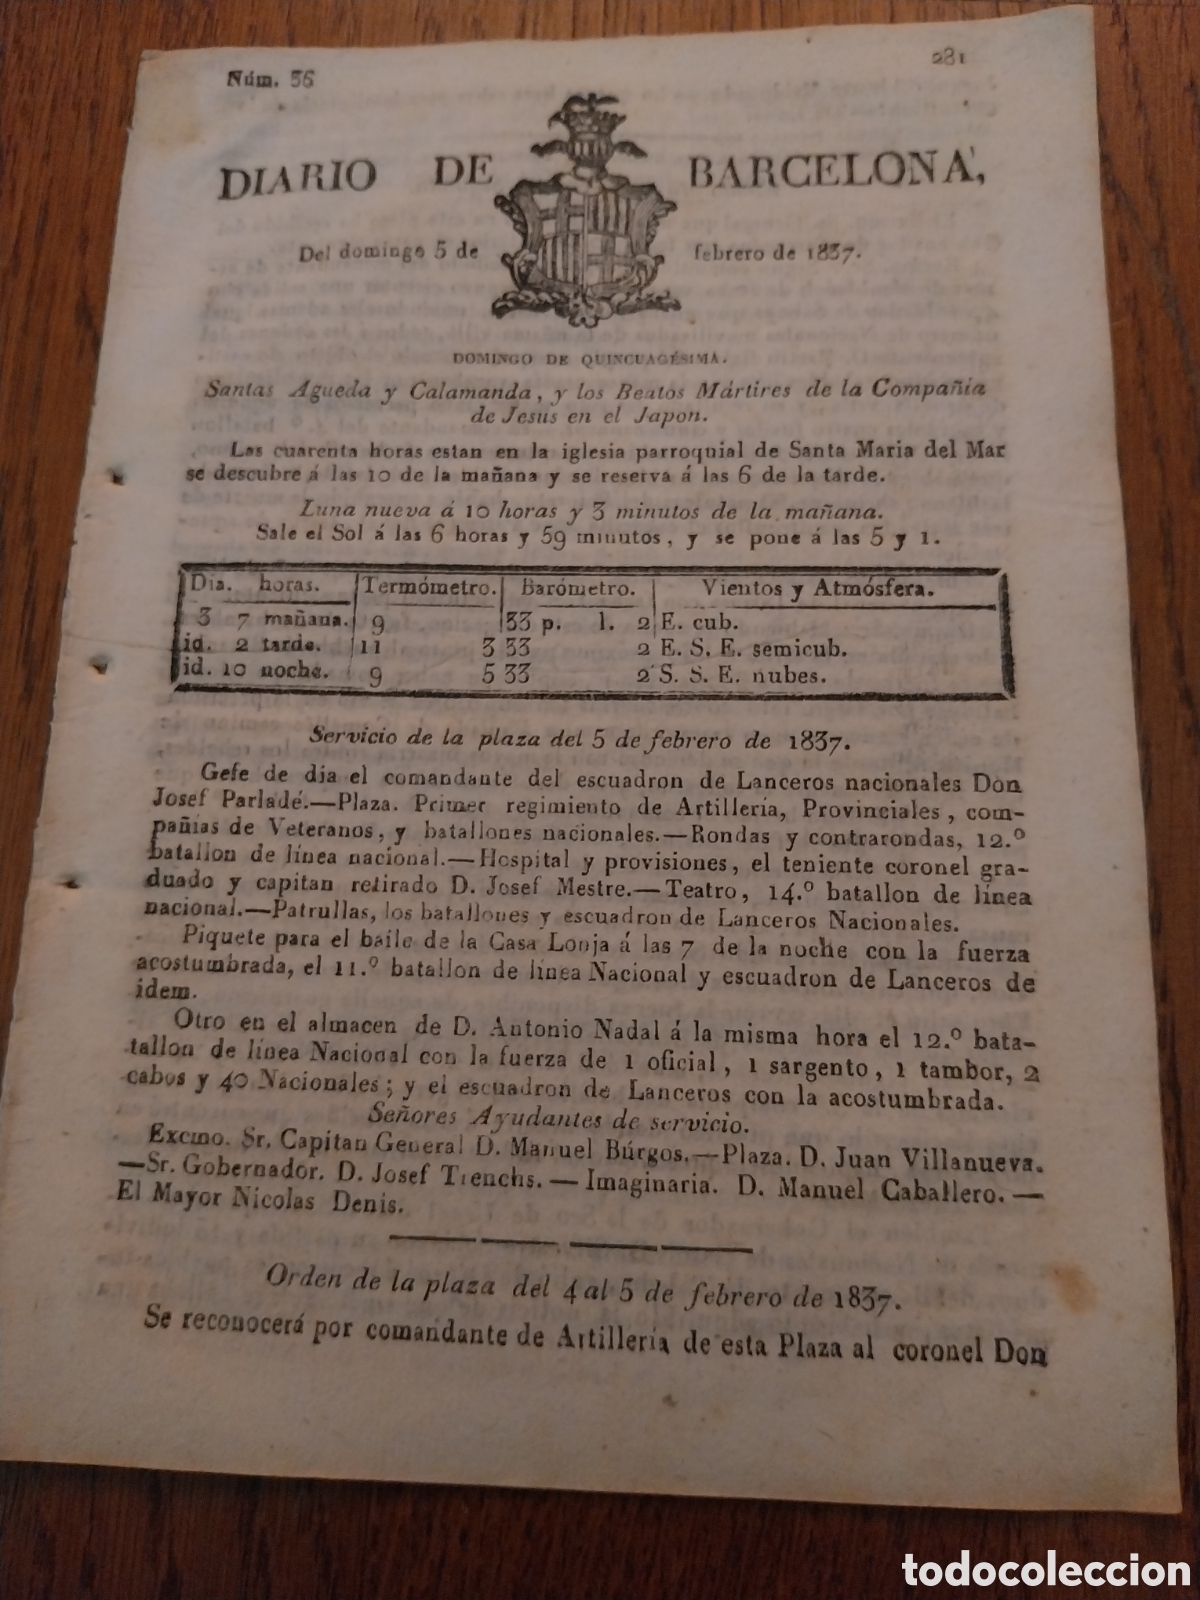 Núm. 36
281
DIARIO DE BARCELONA,
Del domingo 5 de febrero de 1837.
DOMINGO DE QUINCUAGÉSIMA.
Santas Agueda y Calamanda, y los Beatos Mártires de la Compañía
de Jesus en el Japon.
Las cuarenta horas estan en la iglesia parroquial de Santa Maria del Mar
se descubre á las 10 de la mañana y se reserva á las 6 de la tarde.
Luna nueva á 10 horas y 3 minutos de la mañana.
Sale el Sol á las 6 horas y 59 minutos, y se pone á las 5 y 1.
Dia. horas. Termómetro. Barómetro. Vientos y Atmósfera.
3 7 mañana. 9 33 p. l. 2 E. cub.
id. 2 tarde. 11 3 33 2 E. S. E. semicub.
id. 10 noche. 9 5 33 2 S. S. E. nubes.
Servicio de la plaza del 5 de febrero de 1837.
Gefe de dia el comandante del escuadron de Lanceros nacionales Don
Josef Parladé.—Plaza. Primer regimiento de Artillería, Provinciales, com-
pañias de Veteranos, y batallones nacionales.—Rondas y contrarondas, 12.º
batallon de línea nacional.—Hospital y provisiones, el teniente coronel gra-
duado y capitan retirado D. Josef Mestre.—Teatro, 14.º batallon de línea
nacional.—Patrullas, los batallones y escuadron de Lanceros Nacionales.
Piquete para el baile de la Casa Lonja á las 7 de la noche con la fuerza
acostumbrada, el 11.º batallon de línea Nacional y escuadron de Lanceros de
idem.
Otro en el almacen de D. Antonio Nadal á la misma hora el 12.º bata-
tallon de línea Nacional con la fuerza de 1 oficial, 1 sargento, 1 tambor, 2
cabos y 40 Nacionales; y el escuadron de Lanceros con la acostumbrada.
Señores Ayudantes de servicio.
Excmo. Sr. Capitan General D. Manuel Búrgos.—Plaza. D. Juan Villanueva.
—Sr. Gobernador. D. Josef Trenchs.—Imaginaria. D. Manuel Caballero.—
El Mayor Nicolas Denis.
Orden de la plaza del 4 al 5 de febrero de 1837.
Se reconocerá por comandante de Artillería de esta Plaza al coronel Don
todocoleccion